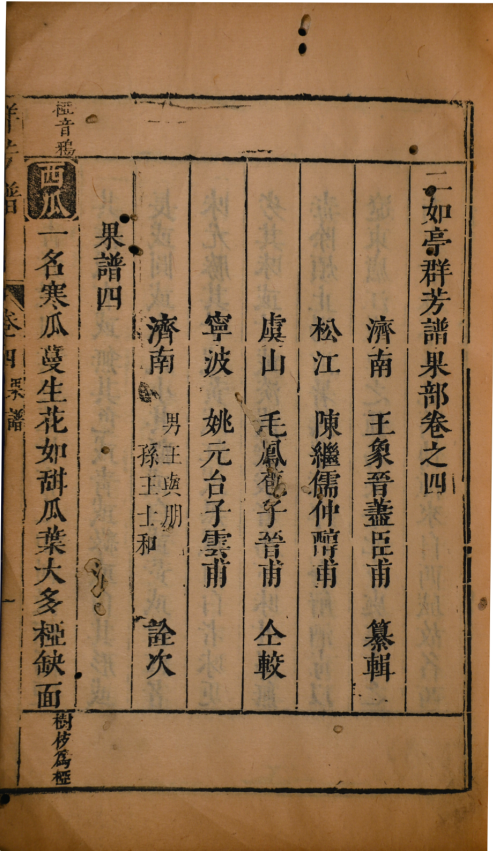 二如亭群芳譜果部卷之四
濟南 王象晉藎臣甫 纂輯
松江 陳繼儒仲醇甫
虞山 毛鳳苞子晉甫 仝較
寧波 姚元台子雲甫
濟南 男王與朋
孫王士和
詮次
果譜四
西瓜 一名寒瓜蔓生花如甜瓜葉大多椏缺面
椏音鴉
樹岐為椏
群芳譜
卷四 果譜
一